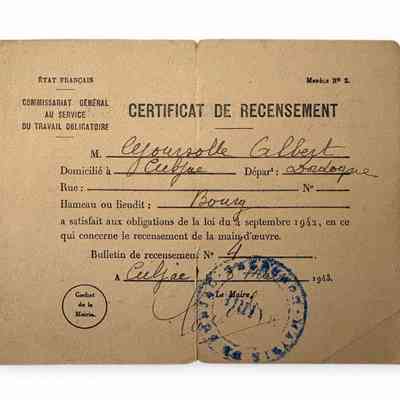 ÉTAT FRANÇAIS
MODÈLE N° 2.
COMMISSARIAT GÉNÉRAL
AU SERVICE
DU TRAVAIL OBLIGATOIRE
CERTIFICAT DE RECENSEMENT
M. Albert
Domicilié à Cubjac Départ : Dordogne
Rue : N°
Hameau ou lieudit : Bourg
a satisfait aux obligations de la loi du 4 septembre 1942, en ce
qui concerne le recensement de la main d'œuvre.
Bulletin de recensement N° 4
A Cubjac 1943.
Cachet
de la
Mairie.
Le Maire,